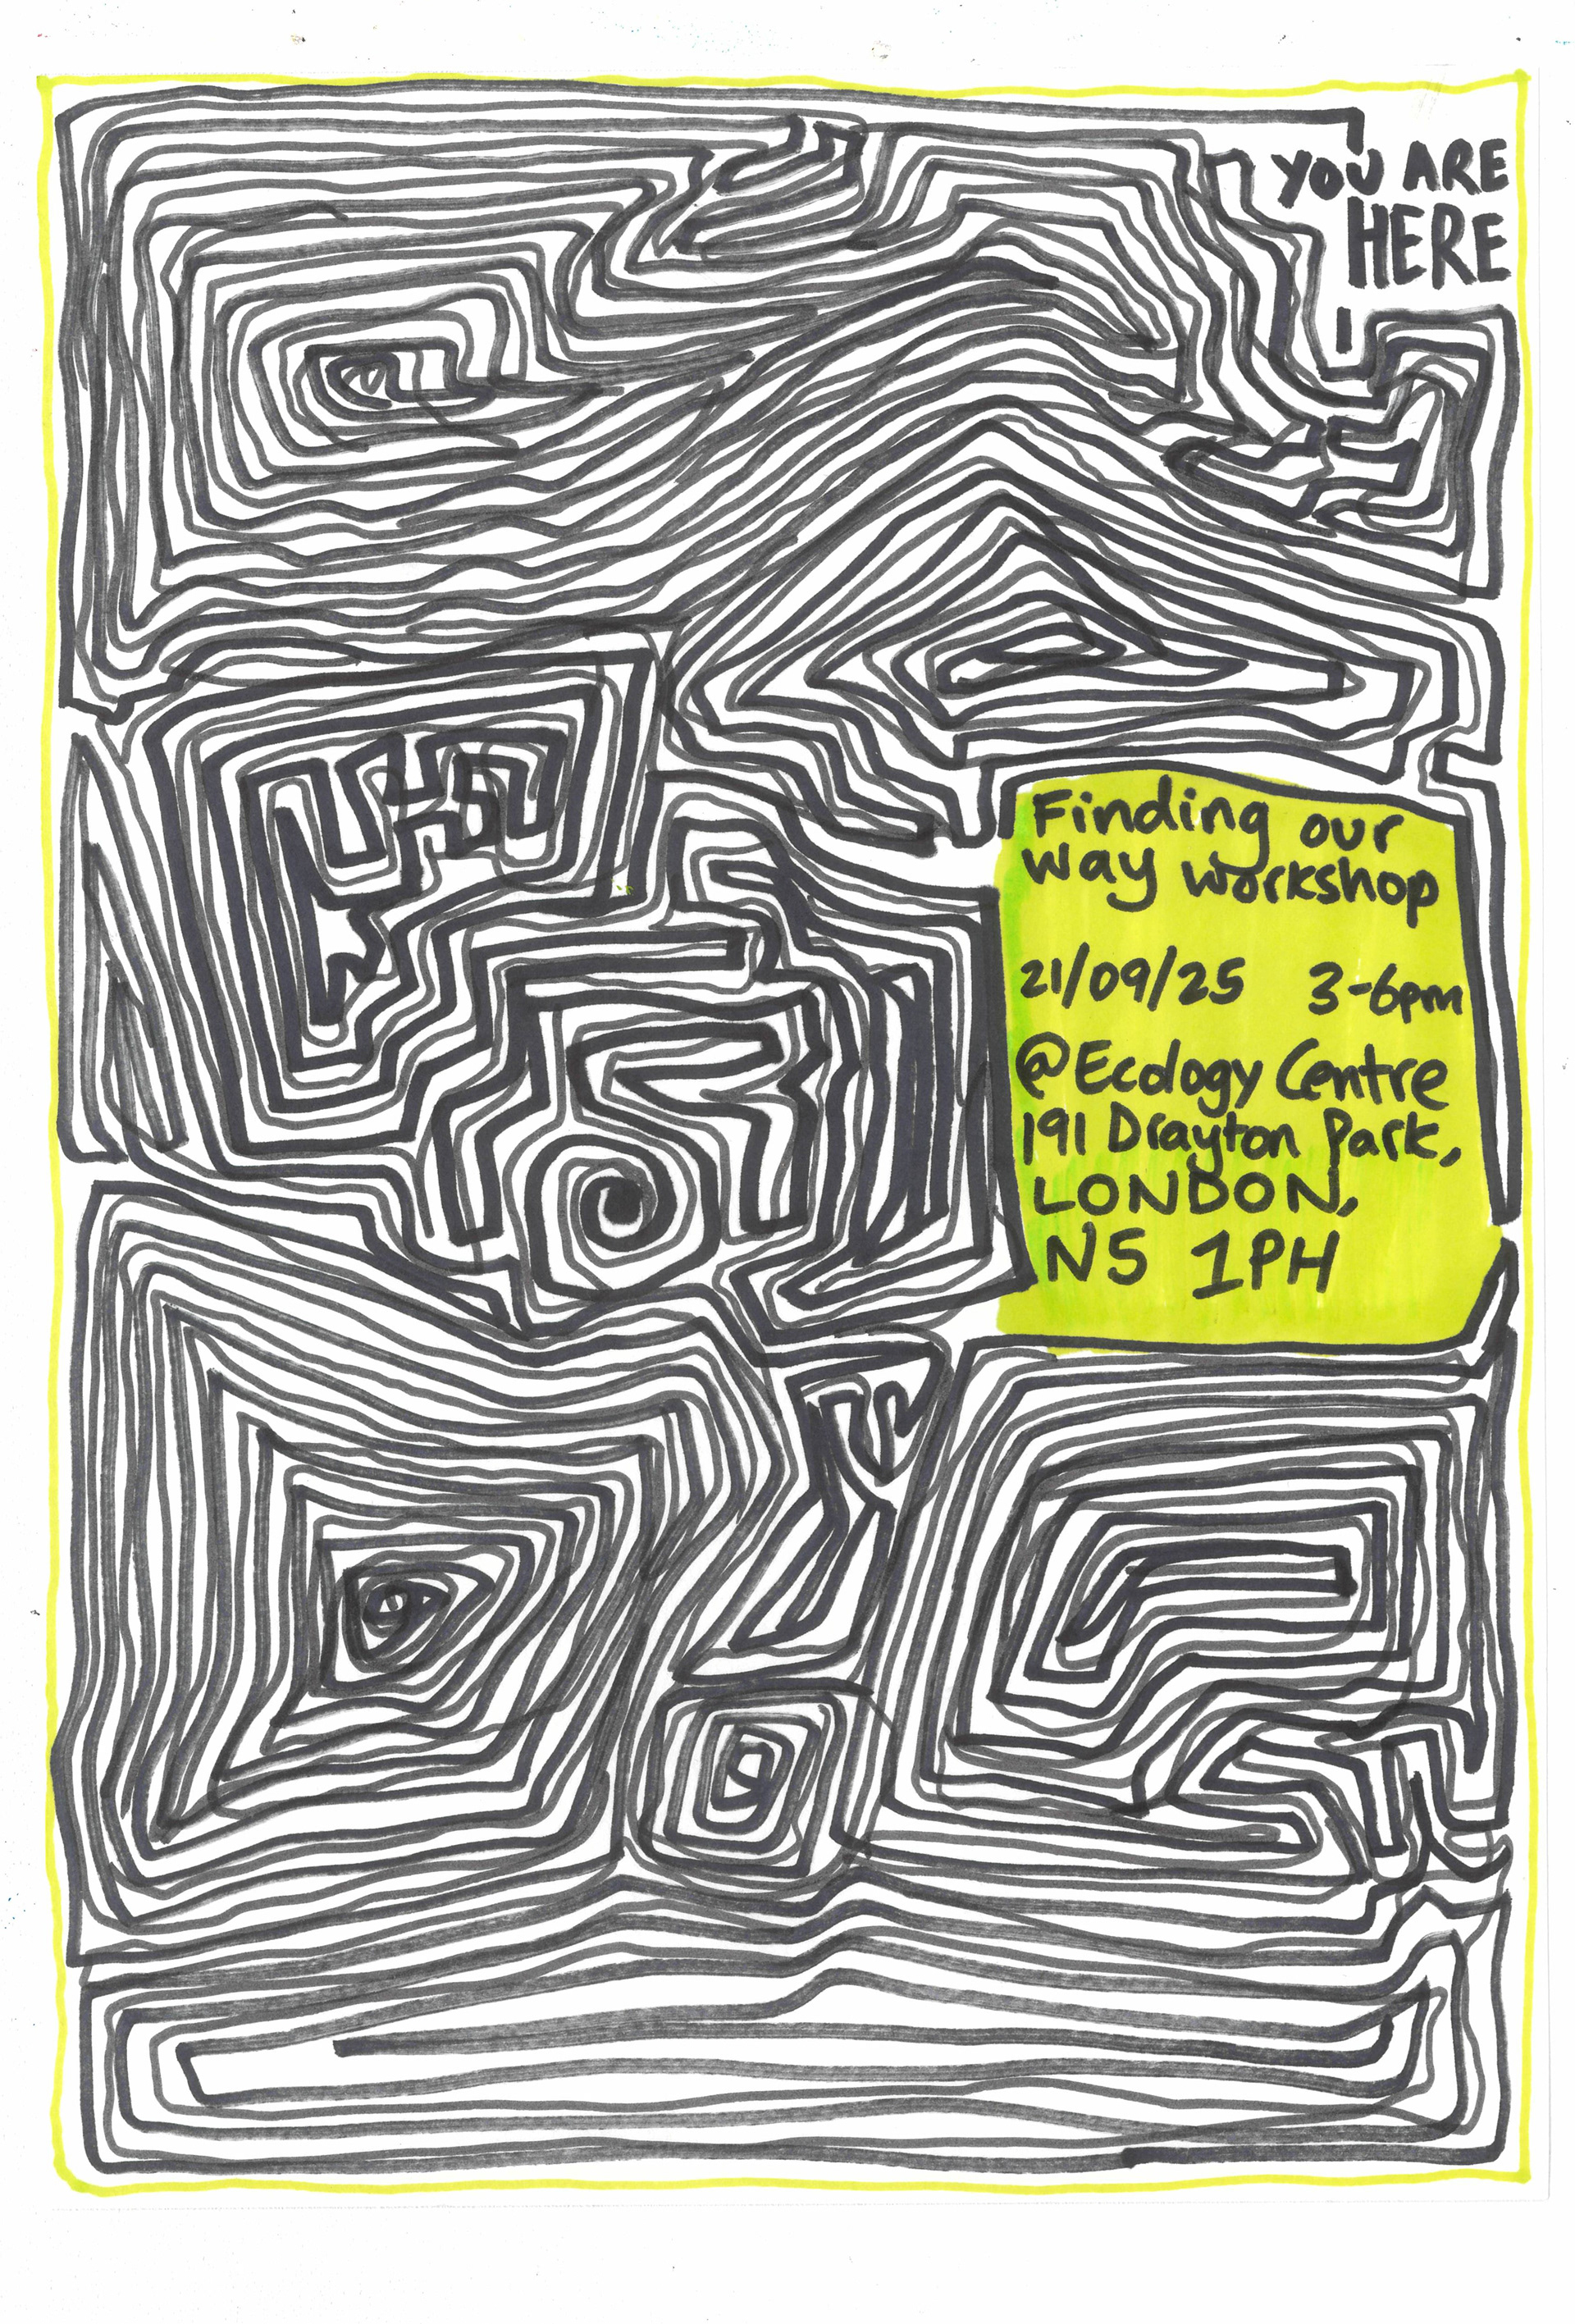 YOU ARE
HERE
Finding our
way workshop
21/09/25 3-6pm
@Ecology Centre
191 Drayton Park,
LONDON,
N5 1PH